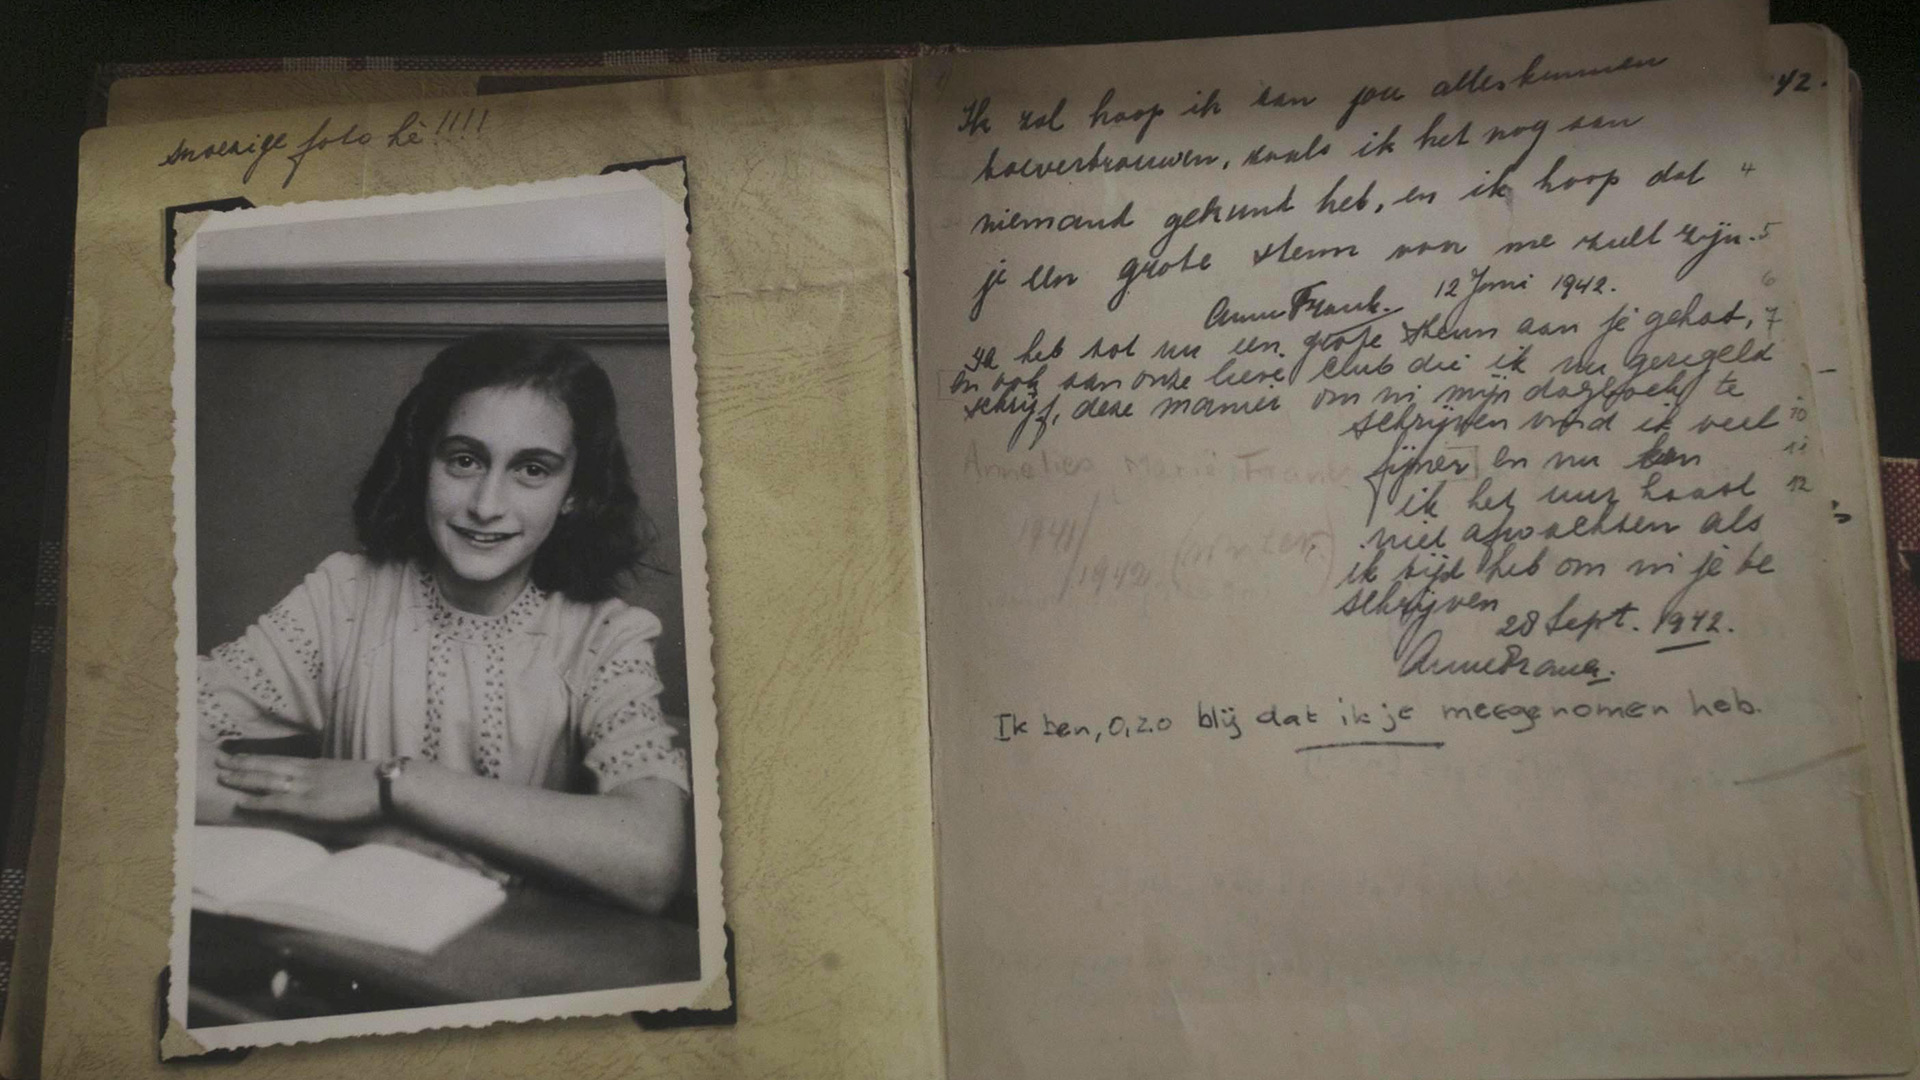 snoezige foto hè!!!!
42.
Ik zal hoop ik aan jou alles kunnen
toevertrouwen, zoals ik het nog aan
niemand gekunt heb, en ik hoop dat 4
je een grote steun van me zult zijn. 5
Anne Frank. 12 Juni 1942. 6
Ik heb tot nu een grote steun aan je gehad, 7
en ook aan onze lieve club die ik nu geregeld
schrijf, deze manier om in mijn dagboek te
schrijven vind ik veel 10
fijner en nu kan 11
ik het uur haast 12
niet afwachten als
ik tijd heb om in je te
schrijven
28 Sept. 1942.
Anne Frank.
Annelies Marie Frank
1941/
1942 (winter)
Ik ben, o, zo blij dat ik je meegenomen heb.